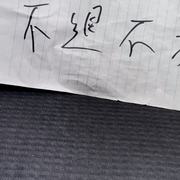 不退不